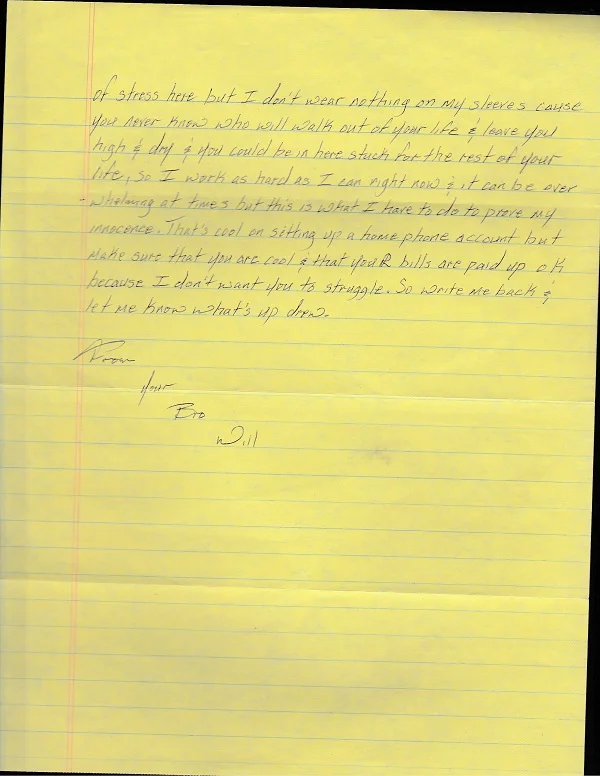 of stress here but I don't wear nothing on my sleeves cause
you never know who will walk out of your life & leave you
high & dry & you could be in here stuck for the rest of your
life, So I work as hard as I can right now & it can be over
-whelming at times but this is what I have to do to prove my
innocence. That's cool on sitting up a home phone account but
make sure that you are cool & that youR bills are paid up ok
because I don't want you to struggle. So write me back &
let me know what's up drew.
From
your
Bro
Will